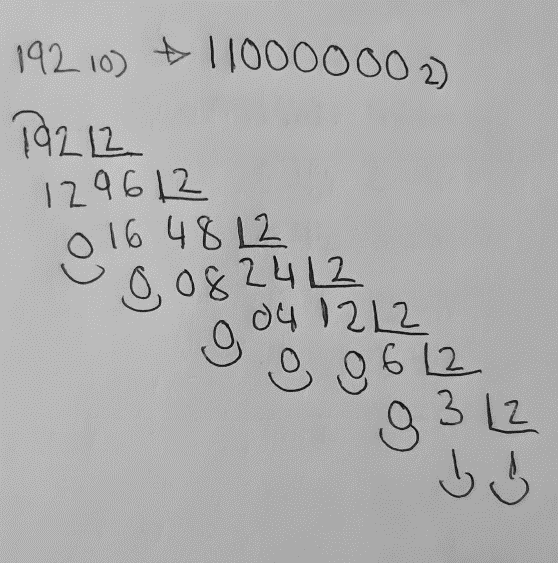 192 10) → 11000000 2)
192 2
12 96 2
0 16 48 2
0 08 24 2
0 04 12 2
0 0 6 2
0 3 2
1 1